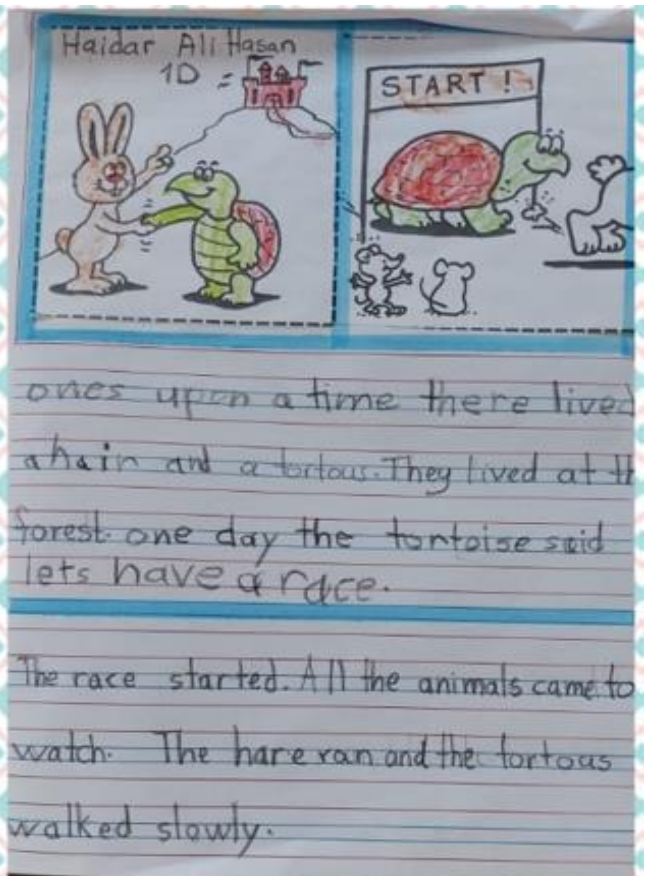 Haidar Ali Hasan
1D
START !
ones upon a time there lived
a hain and a tortous. They lived at th
forest. one day the tortoise said
lets have a race.
The race started. All the animals came to
watch. The hare ran and the tortous
walked slowly.